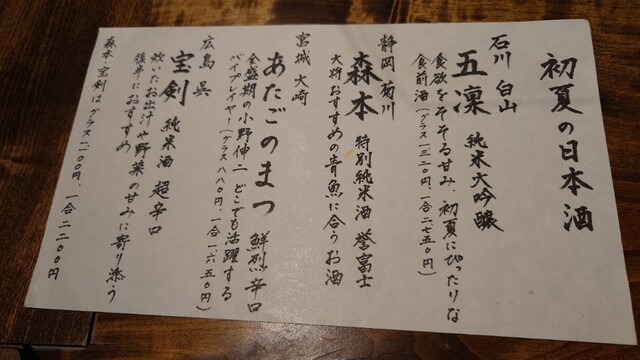 初夏の日本酒
石川 白山
五凜 純米大吟醸
食欲をそそる甘み、初夏にぴったりな
食前酒(グラス一三二〇円、一合二七五〇円)
静岡 菊川
森本 特別純米酒 誉富士
大将おすすめの青魚に合うお酒
宮城 大崎
あたごのまつ 鮮烈辛口
全盛期の小野伸二 どこでも活躍する
バイプレイヤー(グラス八八〇円、一合一六五〇円)
広島 呉
宝剣 純米酒 超辛口
炊いたお出汁や野菜の甘みに寄り添う
後半におすすめ
森本・宝剣はグラス一二〇〇円、一合二二〇〇円